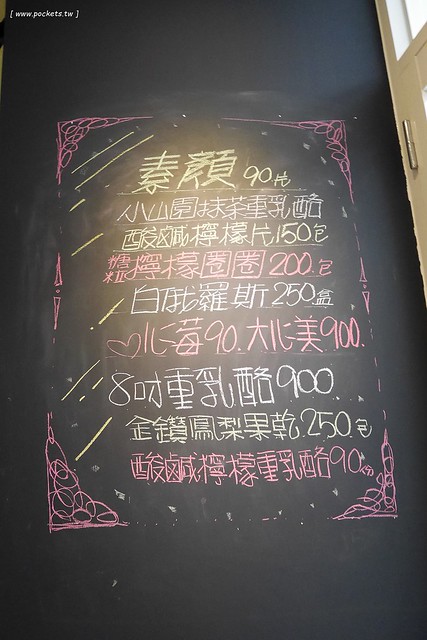 [ www.pockets.tw ]
素顏 90片
小山園抹茶重乳酪
酸鹹檸檬片150包
糖粒檸檬圈圈200.包
白俄羅斯250盒
♡心莓90.大心美900.
8吋重乳酪900.
金鑽鳳梨果乾.250.包
酸鹹檸檬重乳酪90